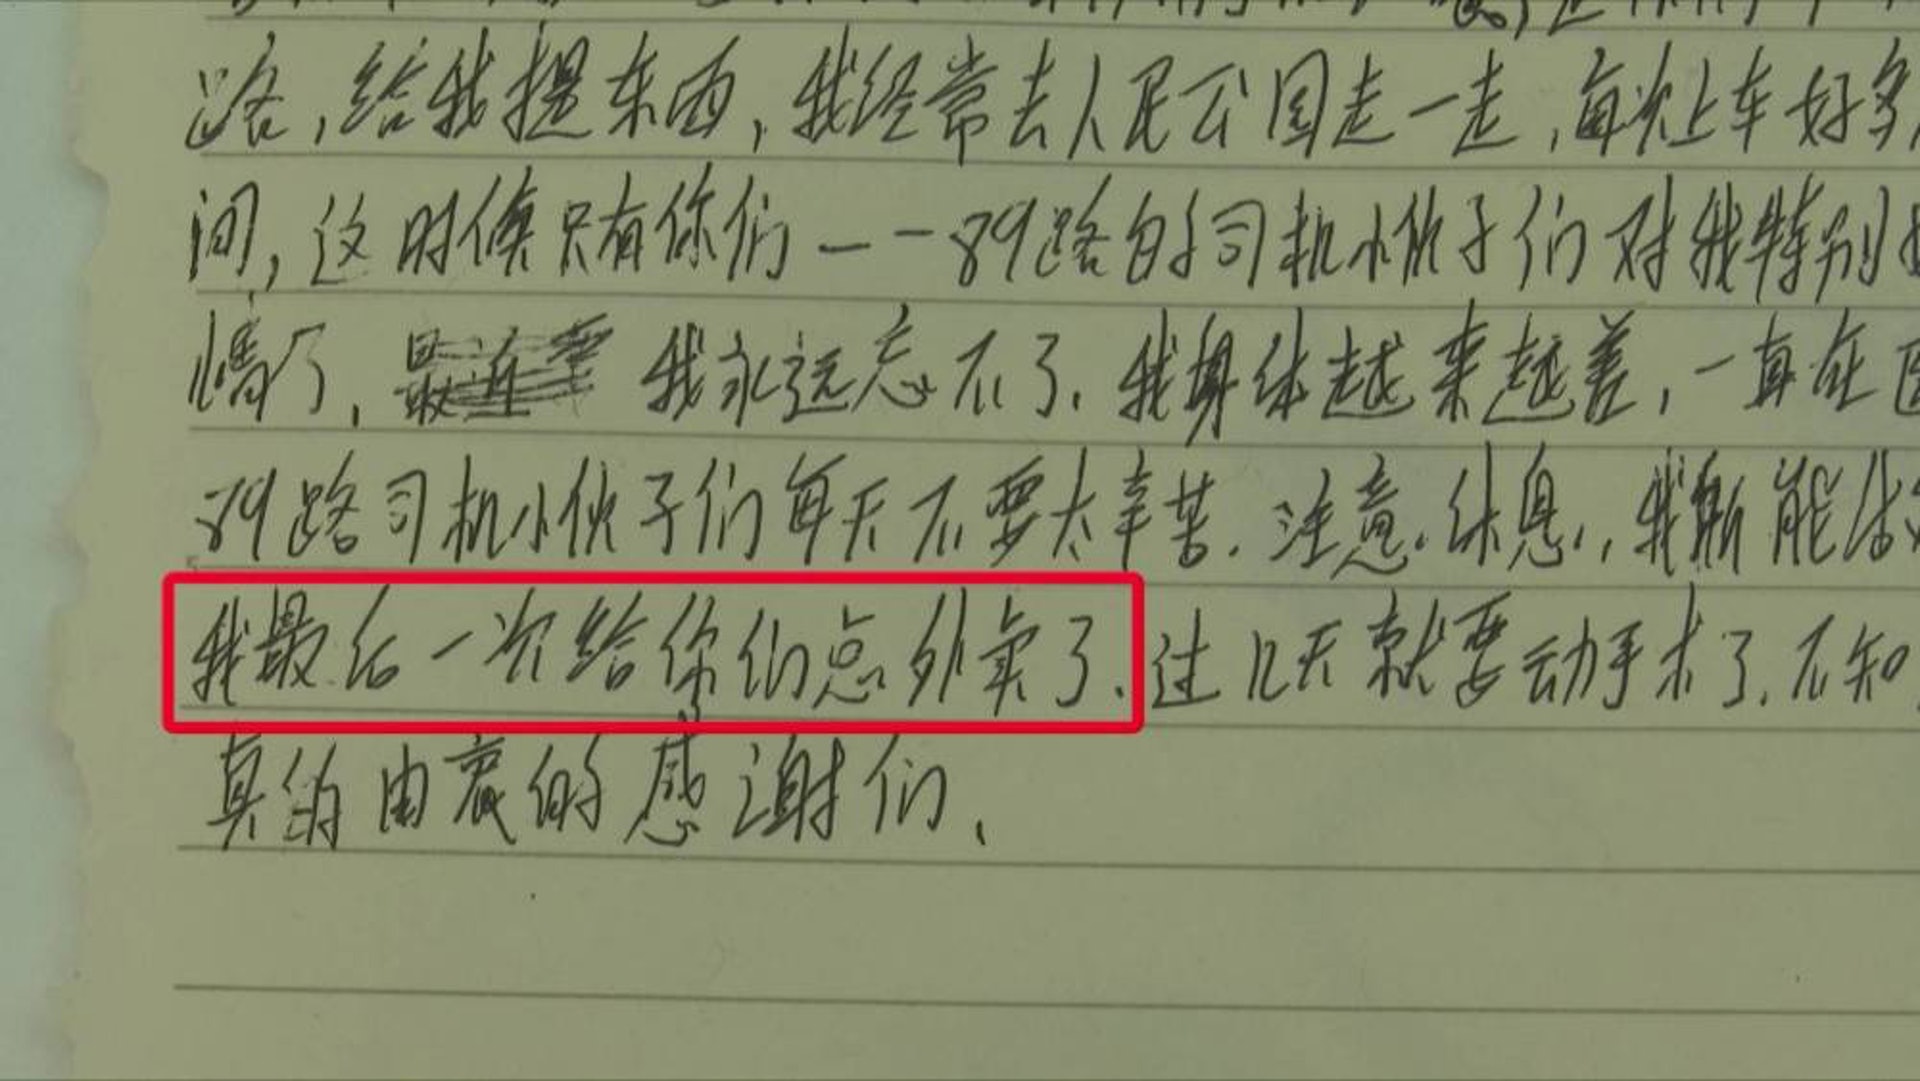 路,给我提东西,我经常去人民公园走一走,每次上车好多
间,这时候只有你们——89路的司机小伙子们对我特别
懤了,最近 我永远忘不了.我身体越来越差,一直在医
89路司机小伙子们每天不要太辛苦.注意.休息.,我
我最后一次给你们点外卖了.过几天就要动手术了.不知
真的由衷的感谢们、